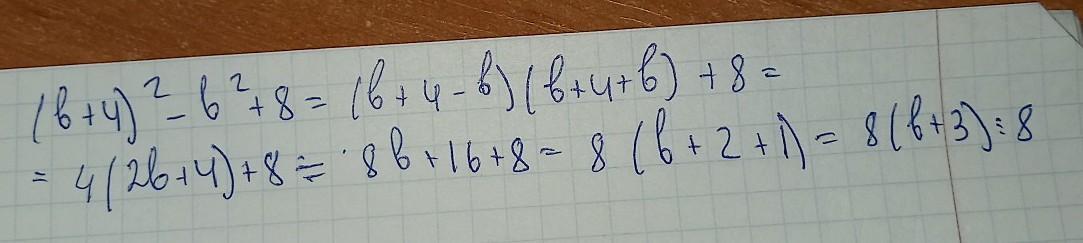 (в+4)² - в² + 8 = (в + 4 - в)(в + 4 + в) + 8 =
= 4(2в+4)+8 = 8в + 16 + 8 = 8 (в + 2 + 1) = 8(в+3)⋮8